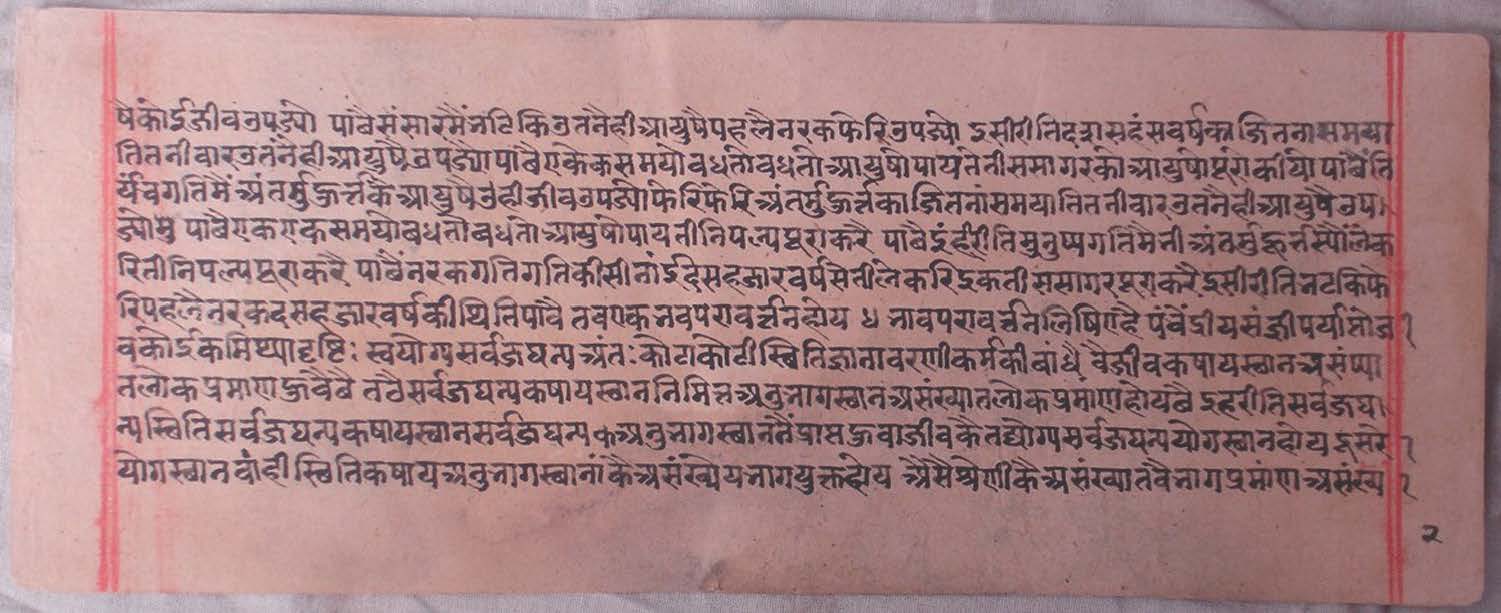 षैकोईजीवउपज्यो पाछैसंसारमैंभटिकिउतनैहीआयुषैपहलैनरकफेरिउपज्यो इसीरीतिदशसहंसवर्षकाजितनासमया
तितनीवारउतनेहीआयुषैउपज्योपाछैएकेकसमयोवधतोवधतोआयुषोपायतेतीससागरकाआयुर्षापूराकीयापाछैंति
र्यंचगतिमैंअंतर्मुहूर्त्तकैआयुषैउहीजीवउपज्योफेरिफेरिअंतर्मुहूर्त्तकाजितनांसमयातितनीवारउतनैहीआयुषैउप
ज्योमु पाछैएकएकसमयोवधतोवधतोआयुषोपायतीनिपल्यपूराकरै पाछैइंहींरीतिमुनुष्यगतिमैभीअंतर्मुहूर्त्तस्योंलेक
रितीनिपल्यपूराकरै पाछैंनरकगतिगतिकीसीनांईदससहजारवर्षसैतीलेकरिइकतीससागरपूराकरैइसीरीतिभटकिफे
रिपहलैनरकदसहजारवर्षकीथितिपावै तवएकभवपरावर्त्तनहोय ४ भावपरावर्त्तनलिषिएहै पंचेंद्रीयसंज्ञीपर्याप्तोज
वकोईकमिथ्यादृष्टिः स्वयोग्यसर्वजघन्यअंतःकोटाकोटीस्थितिज्ञानावरणीकर्मकीवांधै वैजीवकषायस्थानअसंष्या
तलोकप्रमाणहूवैछै तठैसर्वजघन्यकषायस्थाननिमित्तअनुभागस्थानअसंख्यातलोकप्रमांणहोयछै इहरीतिसर्वजघ
न्यस्थितिसर्वजघन्यकषायस्थानसर्वजघन्यकअनुभागस्थाननैंप्राप्तहूवाजीवकैतद्योग्यसर्वजघन्ययोगस्थानहोय दूसरे
योगस्थानवांही स्थितिकषायअनुभागस्थानांकैअसंख्येयभागयुक्तहोय अैसैश्रेणीकैअसंख्यातवैभागप्रमांणअसंख्य
२